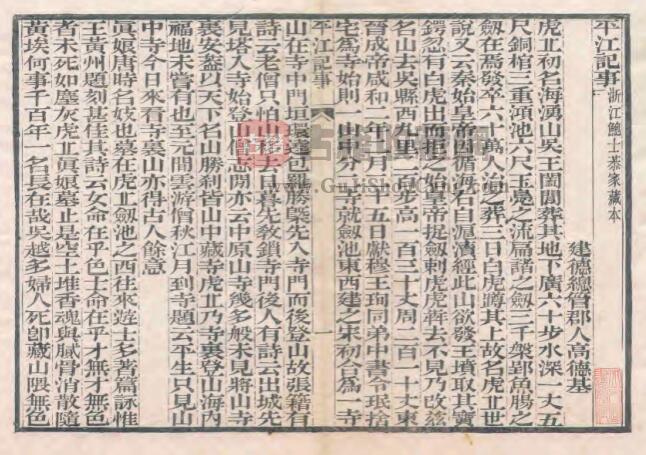 平江記事 浙江鮑士恭家藏本
建德總管郡人高德基
虎丘初名海湧山吳王闔閭葬其地下廣六十步水深一丈五
尺銅棺三重澒池六尺玉鳧之流扁諸之劒三千槃郢魚腸之
劒在焉發卒六十萬人治之葬三日白虎蹲其上故名虎丘世
說又云秦始皇帝因循海右自滬瀆經此山欲發王墳取其寶
鍔忽有白虎出而拒之始皇帝捉劒刺虎虎奔去不見乃改茲
名山去吳縣西九里二百步高一百三十丈周二百一十丈東
晉成帝咸和二年 月二十五日獻穆王珣同弟中書令珉捨
宅爲寺始則一山中分二寺就劒池東西建之宋初合爲一寺
平江記事 一
山在寺中門垣環遶包羅勝槩先入寺門而後登山故張籍有
詩云老僧只怕山移去日暮先敎鎖寺門後人有詩云出城先
見塔入寺始登山 志開亦云中原山寺幾多般未見將山寺
裏安蓋以天下名山勝刹皆山中藏寺虎丘乃寺裏登山海內
福地未嘗有也至元間雲游僧秋江月到寺題云平生只見山
中寺今日來看寺裏山亦得古人餘意
眞娘唐時名妓也墓在虎丘劒池之西往來遊士多著篇詠惟
王黃州題刻甚佳其詩云女命在乎色士命在乎才無才無色
者未死如塵灰虎丘眞娘墓止是空土堆香魂與膩骨消散隨
黃埃何事千百年一名長在哉吳越多婦人死卽藏山隈無色
www.GujiShowCang.com